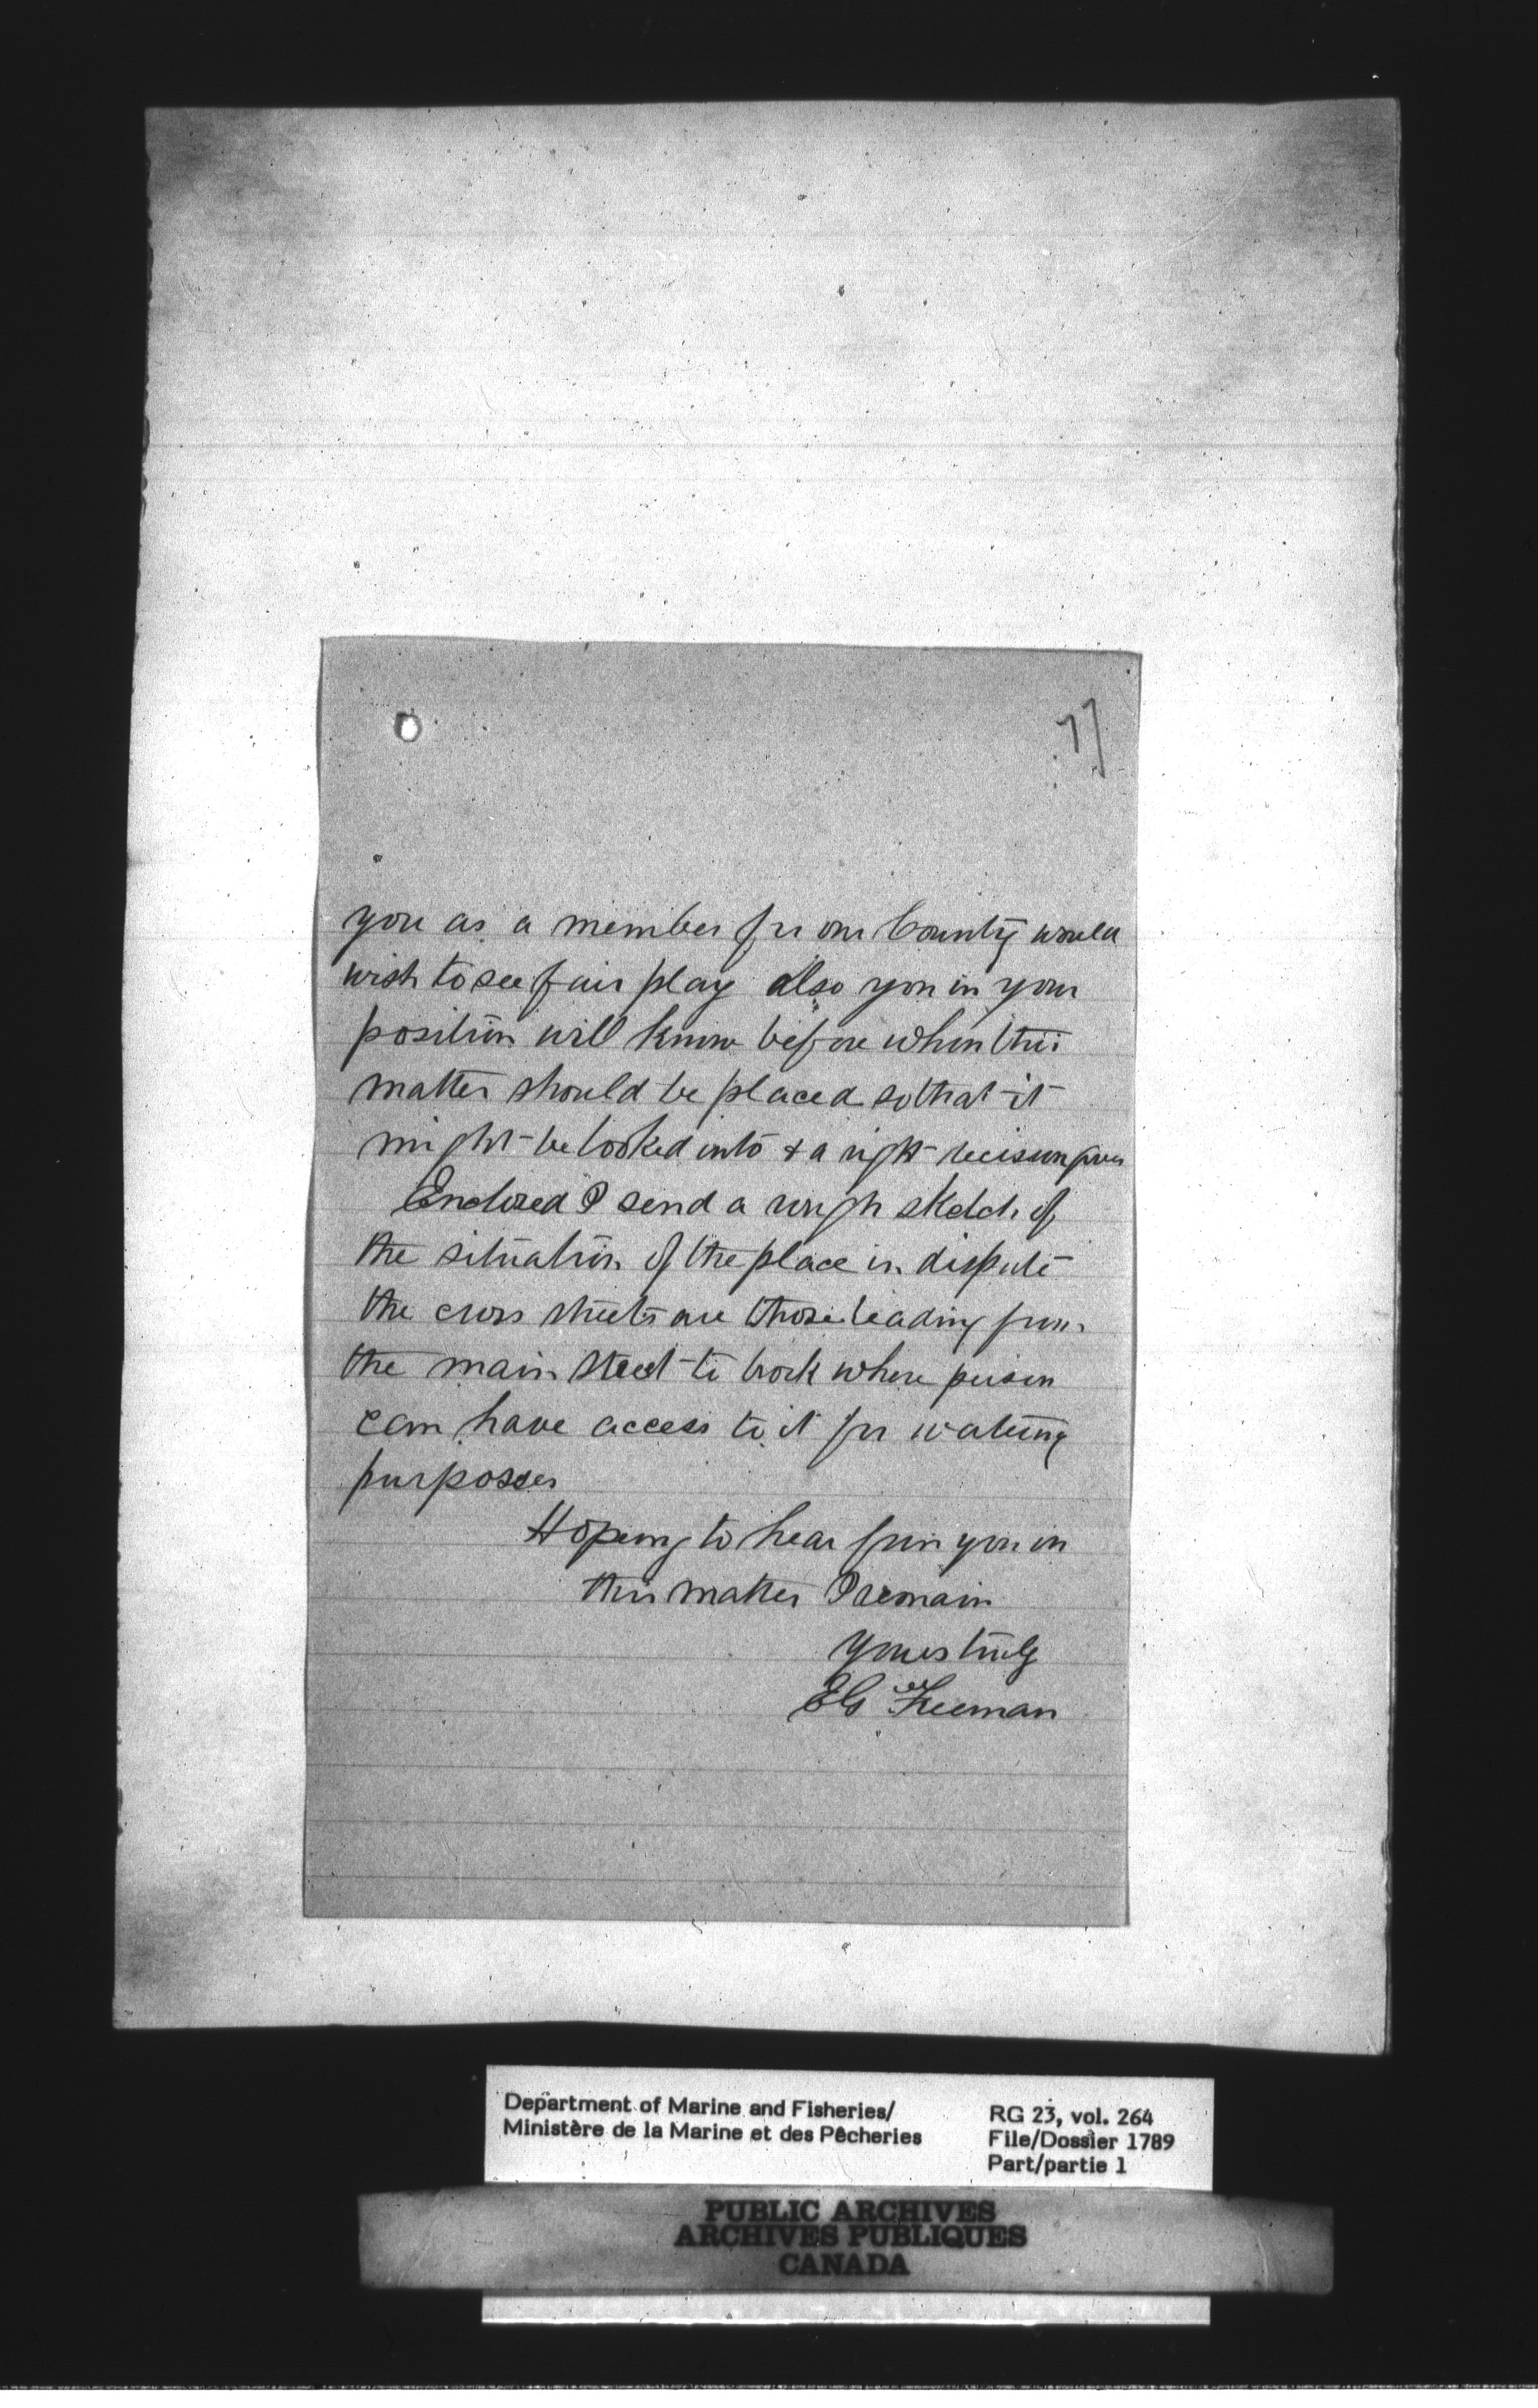 77
you as a member for our County would
wish to see fair play also you in your
position will know before whom this
matter should be placed so that it
might be looked into & a right decision given
Enclosed I send a rough sketch of
the situation of the place in dispute
the cross streets are those leading from
the main street to brook where person
can have access to it for watering
purposses
Hoping to hear from you in
this matter I remain
Yours truly
EG Freeman
Department of Marine and Fisheries/
Ministère de la Marine et des Pêcheries
RG 23, vol. 264
File/Dossier 1789
Part/partie 1
PUBLIC ARCHIVES
ARCHIVES PUBLIQUES
CANADA